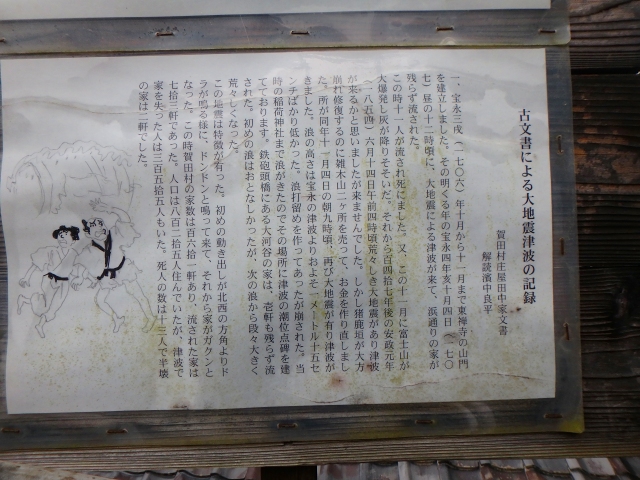 古文書による大地震津波の記録
賀田村庄屋田中家文書
解読濱中良平
一、宝永三戌(一七〇六)年十月から十一月まで東禅寺の山門
を建立しました。その明くる年の宝永四年亥十月四日(一七〇
七)昼の十二時頃に、大地震による津波が来て、浜通りの家が
残らず流された。
この時十一人が流され死にました。又、この十一月に富士山が
大爆発し灰が降りそそいだ。それから百四拾七年後の安政元年
(一八五四)六月十四日午前四時頃荒々しき大地震があり津波
が来るかと思いましたが来ませんでした。しかし猪鹿垣が大方
崩れ修復するのに雑木山二ヶ所を売って、お金を作り直しまし
た。所が同年十一月四日の朝九時頃、再び大地震が有り津波が
きました。浪の高さは宝永の津波よりおよそ一メートル十五セ
ンチばかり低かった。浪打留めを作ってあったが崩された。当
時の稲荷神社まで浪がきたのでその場所に津波の潮位点碑を建
てております。鉄砲頭橋にある大河谷の家は、壱軒も残らず流
された。初めの浪はおとなしかったが、次の浪から段々大きく
荒々しくなった。
この地震は特徴が有った。初めの動き出しが北西の方角よりド
ラが鳴る様に、ドンドンと鳴って来て、それから家がガクンと
なった。この時賀田村の家数は百六拾一軒あり、流された家は
七拾三軒であった。人口は八百二拾五人住んでいたが、津波で
家を失った人は三百五拾五人もいた。死人の数は十三人で半壊
の家は二軒でした。